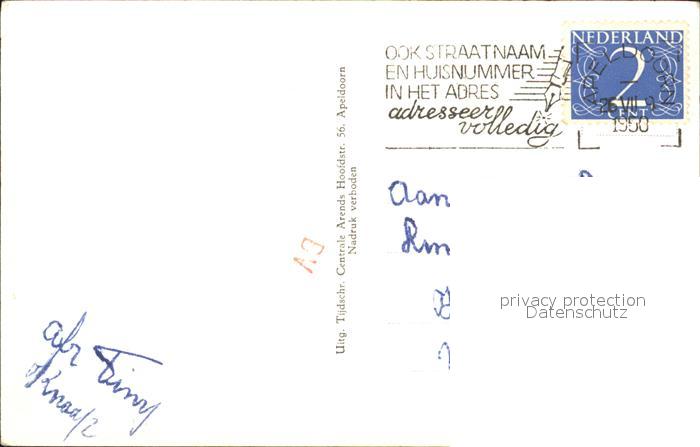 OOK STRAATNAAM
EN HUISNUMMER
IN HET ADRES
adresseer
volledig
NEDERLAND
2
CENT
APELDOORN
26 VII 9
1950
Uitg. Tijdschr. Centrale Arends Hoofdstr. 56. Apeldoorn
Nadruk verboden
Aan
privacy protection
Datenschutz
afz Tiny
Knaap